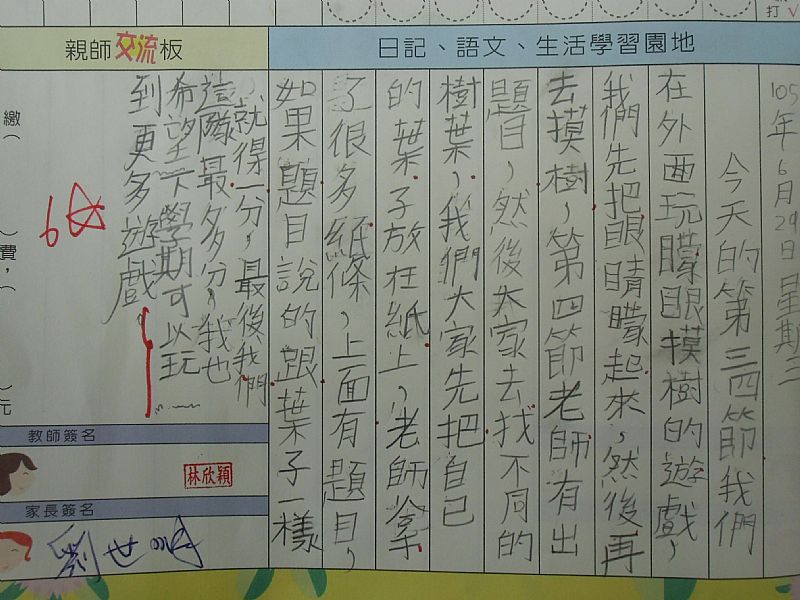 打 ∨
日記、語文、生活學習園地
105年6月29日星期三
今天的第三四節我們
在外面玩矇眼摸樹的遊戲，
我們先把眼睛矇起來，然後再
去摸樹，第四節老師有出
題目，然後大家去找不同的
樹葉，我們大家先把自己
的葉子放在紙上，老師拿
了很多紙條，上面有題目，
如果題目說的跟葉子一樣
，就得一分，最後我們
這隊最多分，我也
希望下學期可以玩
到更多遊戲。
6☆
親師交流板
繳（
）費，（
）元
教師簽名
林欣穎
家長簽名